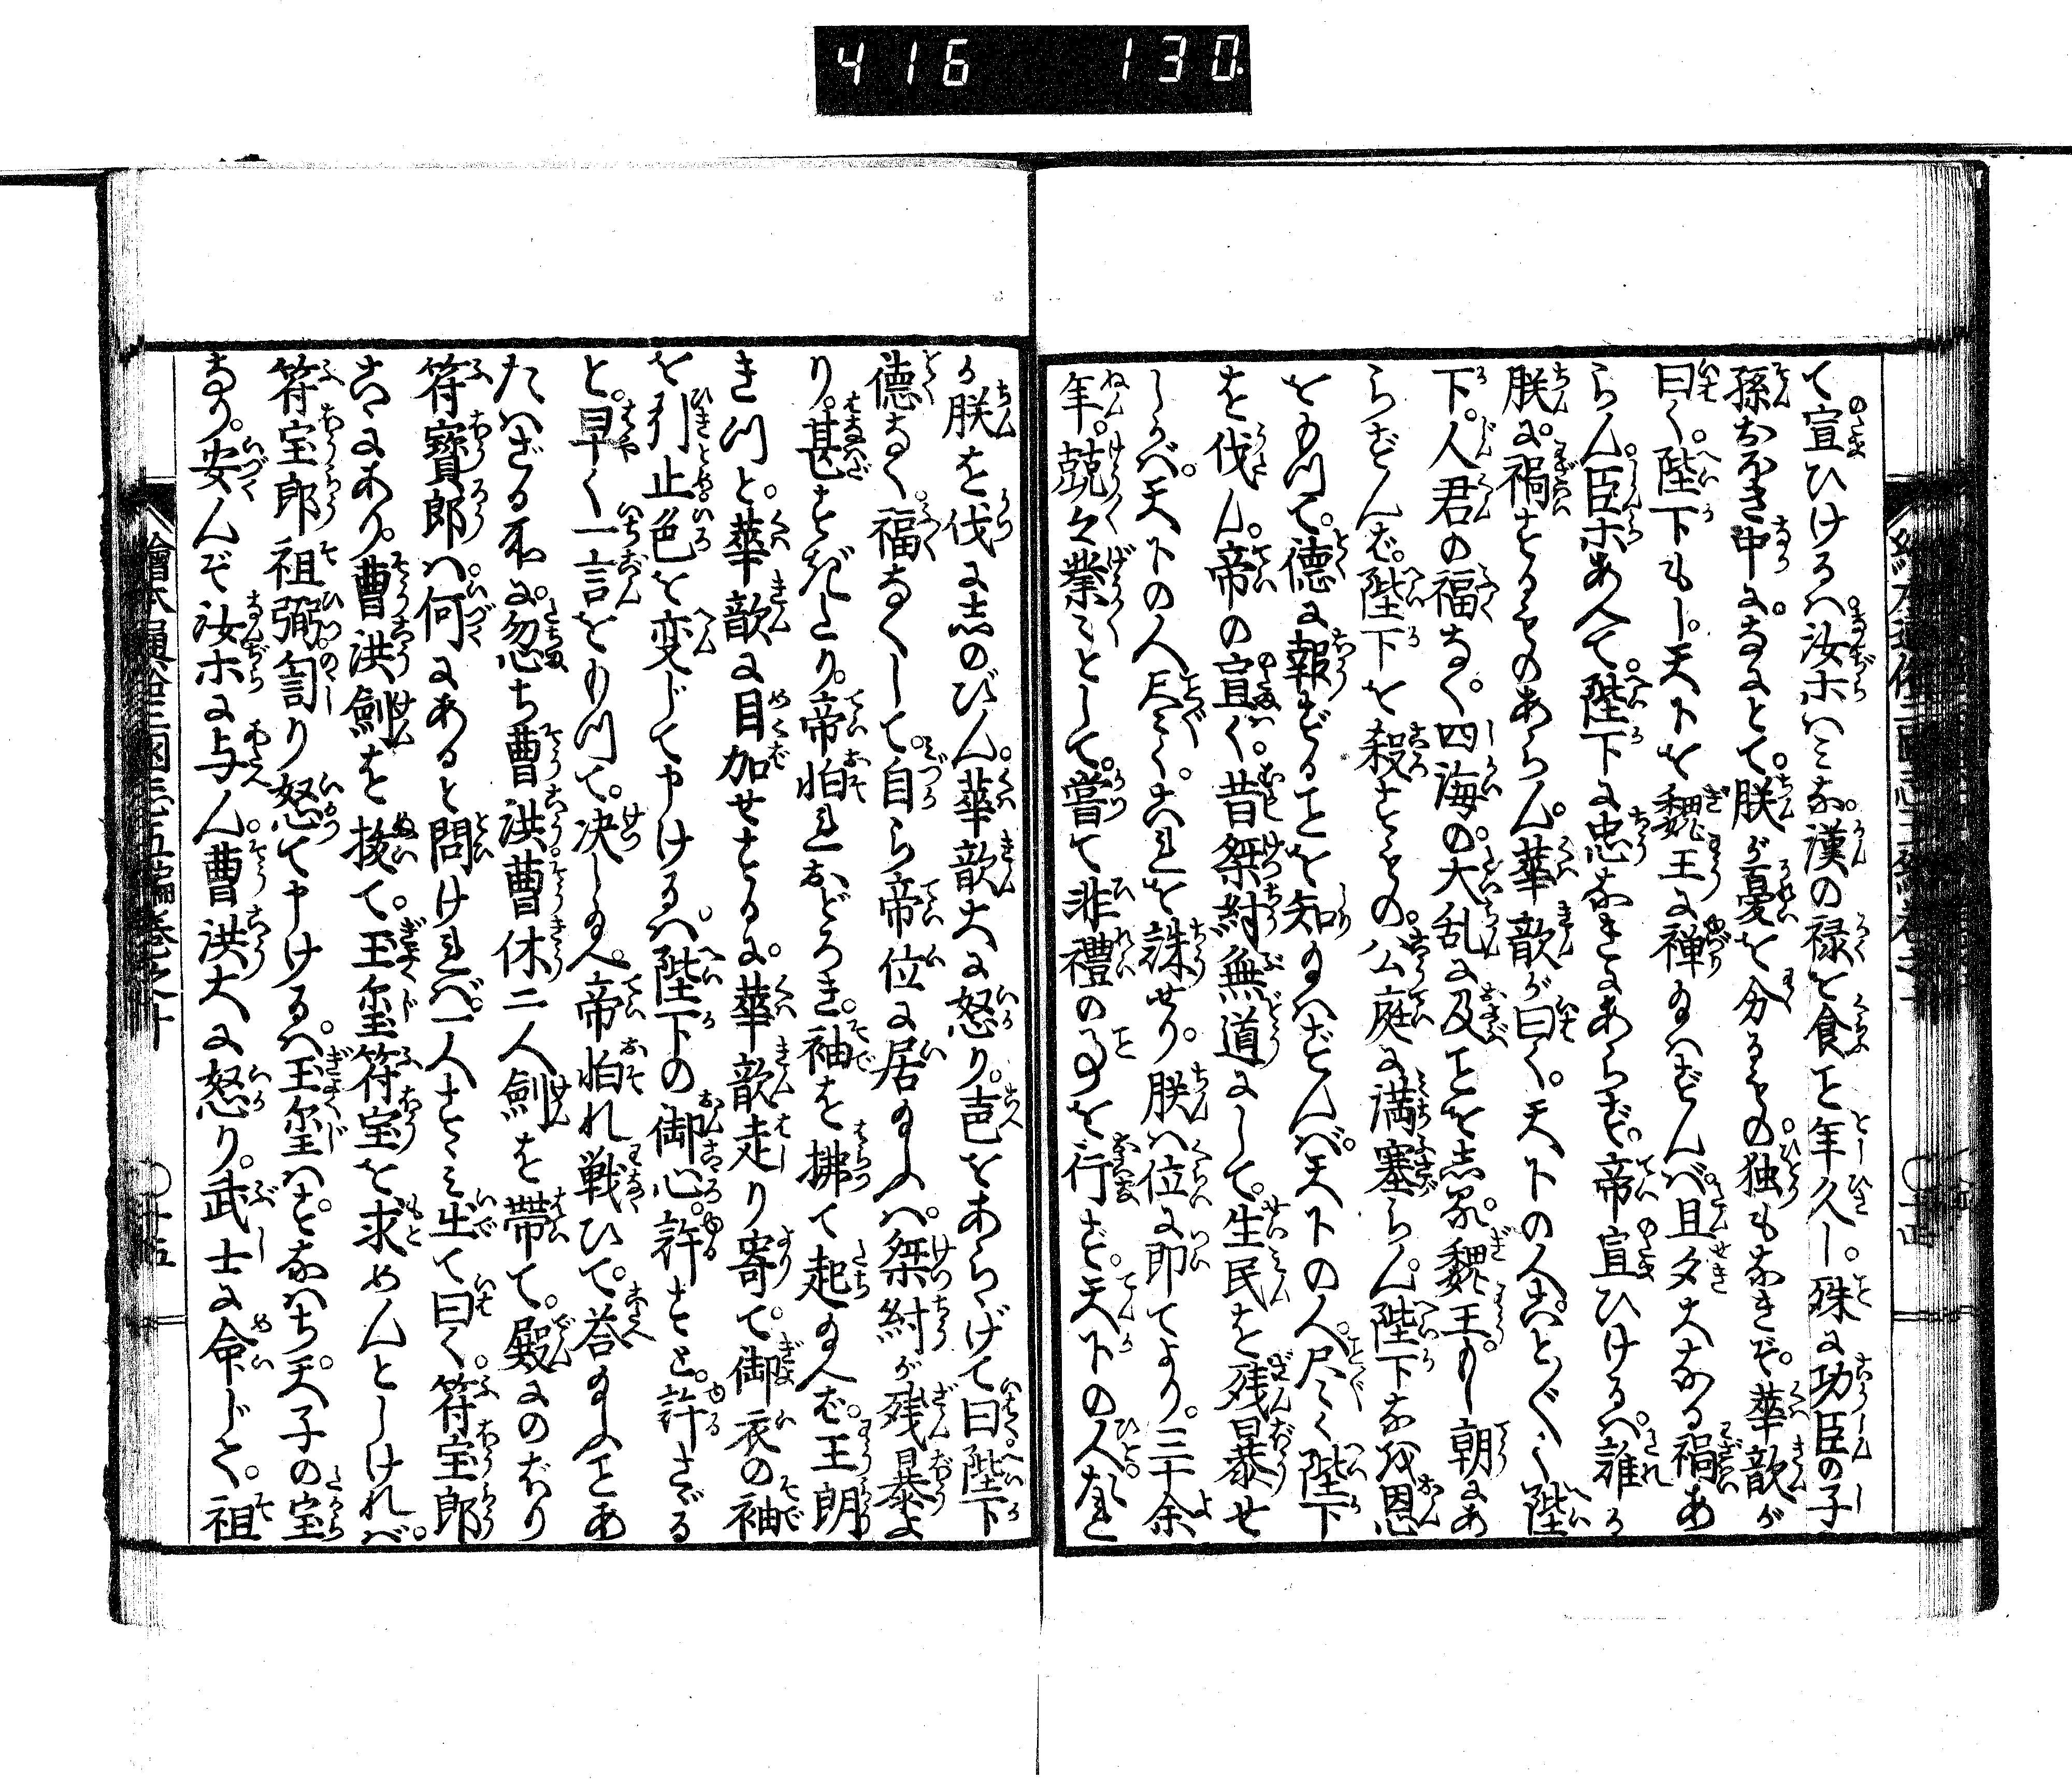 416 130
て宣ひけるハ汝ホハミな漢の禄を食こと年久し。殊に功臣の子
孫おほき中に。なにとて。朕が憂を分るもの。独もなきぞ。華歆が
曰く。陛下もし。天下を魏王に禅り給ハずんバ。且夕大なる禍あ
らん。臣ホあへて。陛下に忠なきにあらず。帝宣ひけるハ。誰か
朕に禍するものあらん。華歆が曰く。天下の人。ことごとく陛
下。人君の福なく。四海の。大乱に及ことを志る。魏王もし朝にあ
らずんば。陛下を殺すもの。公庭に満塞らん。陛下なほ恩
をもつて。徳に報ずることを知給ハずんバ。天下の人。尽く陛下
を伐ん。帝の宣く。昔桀紂無道にして。生民を残暴せ
しかバ。天下の人尽く。これを誅せり。朕ハ位に即てより。三十余
年。兢々業々として。嘗て非禮の事を行ず。天下の人。たれ
か朕を伐に志のびん。華歆大に怒り。声をあらげて曰陛下
徳なく。福なくして。自ら帝位に居給ふハ。桀紂が残暴よ
り。甚だしきなり。帝怕れおどろき。袖を拂て起給へば。王朗
きつと。華歆に目加せするに。華歆走り寄て。御衣の袖
を引止色を変じて申けるハ。陛下の御心。許すと。許さゞる
と。早く一言をもつて。决し給へ。帝怕れ戦ひて。荅給ふことあ
たハざる所に。忽ち曹洪曹休二人劍を帯て。殿にのぼり
符寳郎ハ。何にあると問けれバ。一人すゝミ出て曰く。符宝郎
こゝにあり。曹洪劍を抜て。玉璽符宝を求めんとしけれバ。
符宝郎祖弼匄り怒て申けるハ。玉璽ハすなハち。天子の宝
なり。安んぞ汝ホに与へん。曹洪大に怒り。武士に命じて。祖
繪本通俗三国志五編巻之十
十五